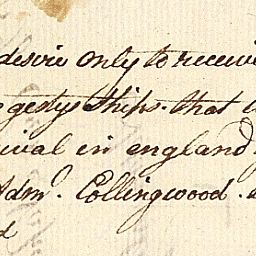 desire only to receive
gestys ships. that
ival in england
Adm^d. Collingwood.
d